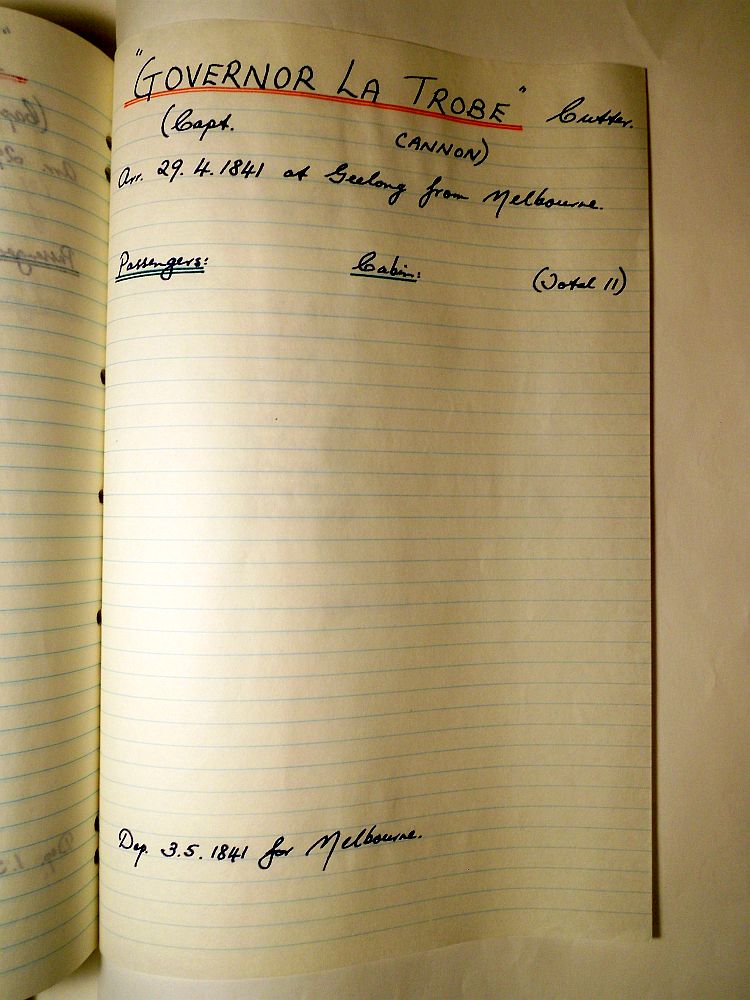 "GOVERNOR LA TROBE" Cutter.
(Capt. CANNON)
Arr. 29.4.1841 at Geelong from Melbourne.
Passengers: Cabin: (Total 11)
Dep. 3.5.1841 for Melbourne.